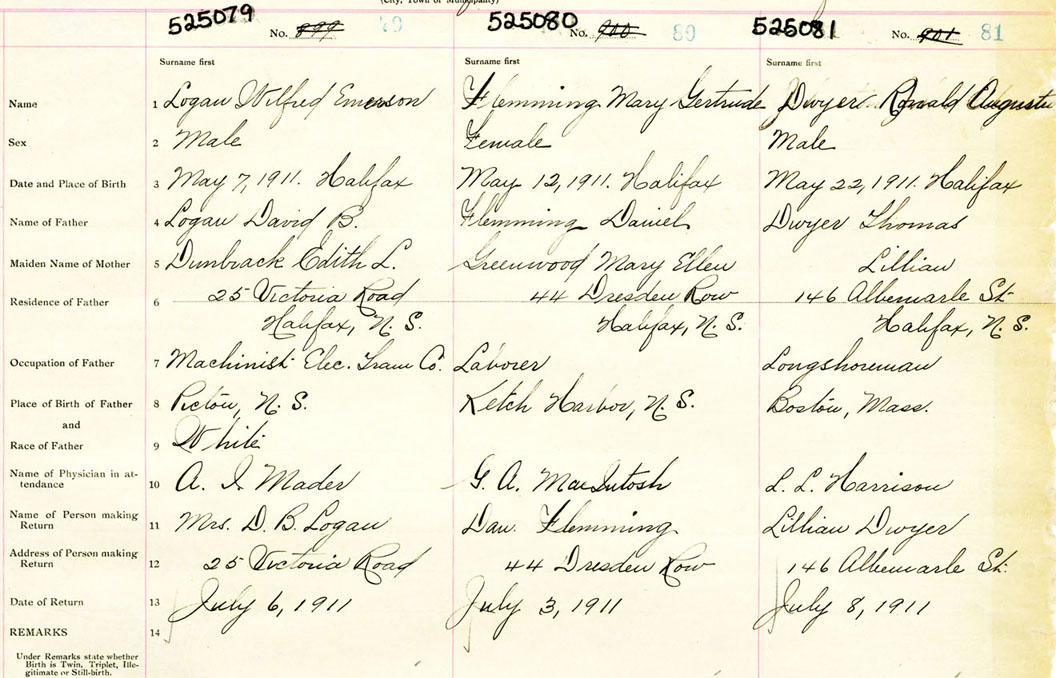 (City, Town or Municipality)
525079 No. 899 79 525080 No. 900 80 525081 No. 901 81
Surname first Surname first Surname first
Name 1 Logan Wilfred Emerson Flemming Mary Gertrude Dwyer Ronald Augustu
Sex 2 Male Female Male
Date and Place of Birth 3 May 7, 1911. Halifax May 12, 1911. Halifax May 22, 1911. Halifax
Name of Father 4 Logan David B. Flemming Daniel Dwyer Thomas
Maiden Name of Mother 5 Dunbrack Edith L. Greenwood Mary Ellen Lillian
Residence of Father 6 25 Victoria Road 44 Dresden Row 146 Albemarle St.
Halifax, N. S. Halifax, N. S. Halifax, N. S.
Occupation of Father 7 Machinist Elec. Tram Co. Laborer Longshoreman
Place of Birth of Father 8 Pictou, N. S. Ketch Harbor, N. S. Boston, Mass.
and
Race of Father 9 White
Name of Physician in at-
tendance 10 A. I. Mader G. A. MacIntosh L. L. Harrison
Name of Person making
Return 11 Mrs. D. B. Logan Dan. Flemming Lillian Dwyer
Address of Person making
Return 12 25 Victoria Road 44 Dresden Row 146 Albemarle St.
Date of Return 13 July 6, 1911 July 3, 1911 July 8, 1911
REMARKS 14
Under Remarks state whether
Birth is Twin, Triplet, Ille-
gitimate or Still-birth.